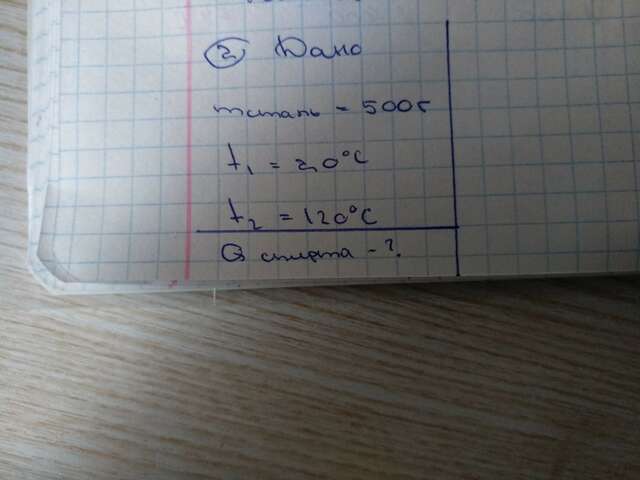 2) Дано
mсталь = 500г
t₁ = 20°C
t₂ = 120°C
Q спирта - ?